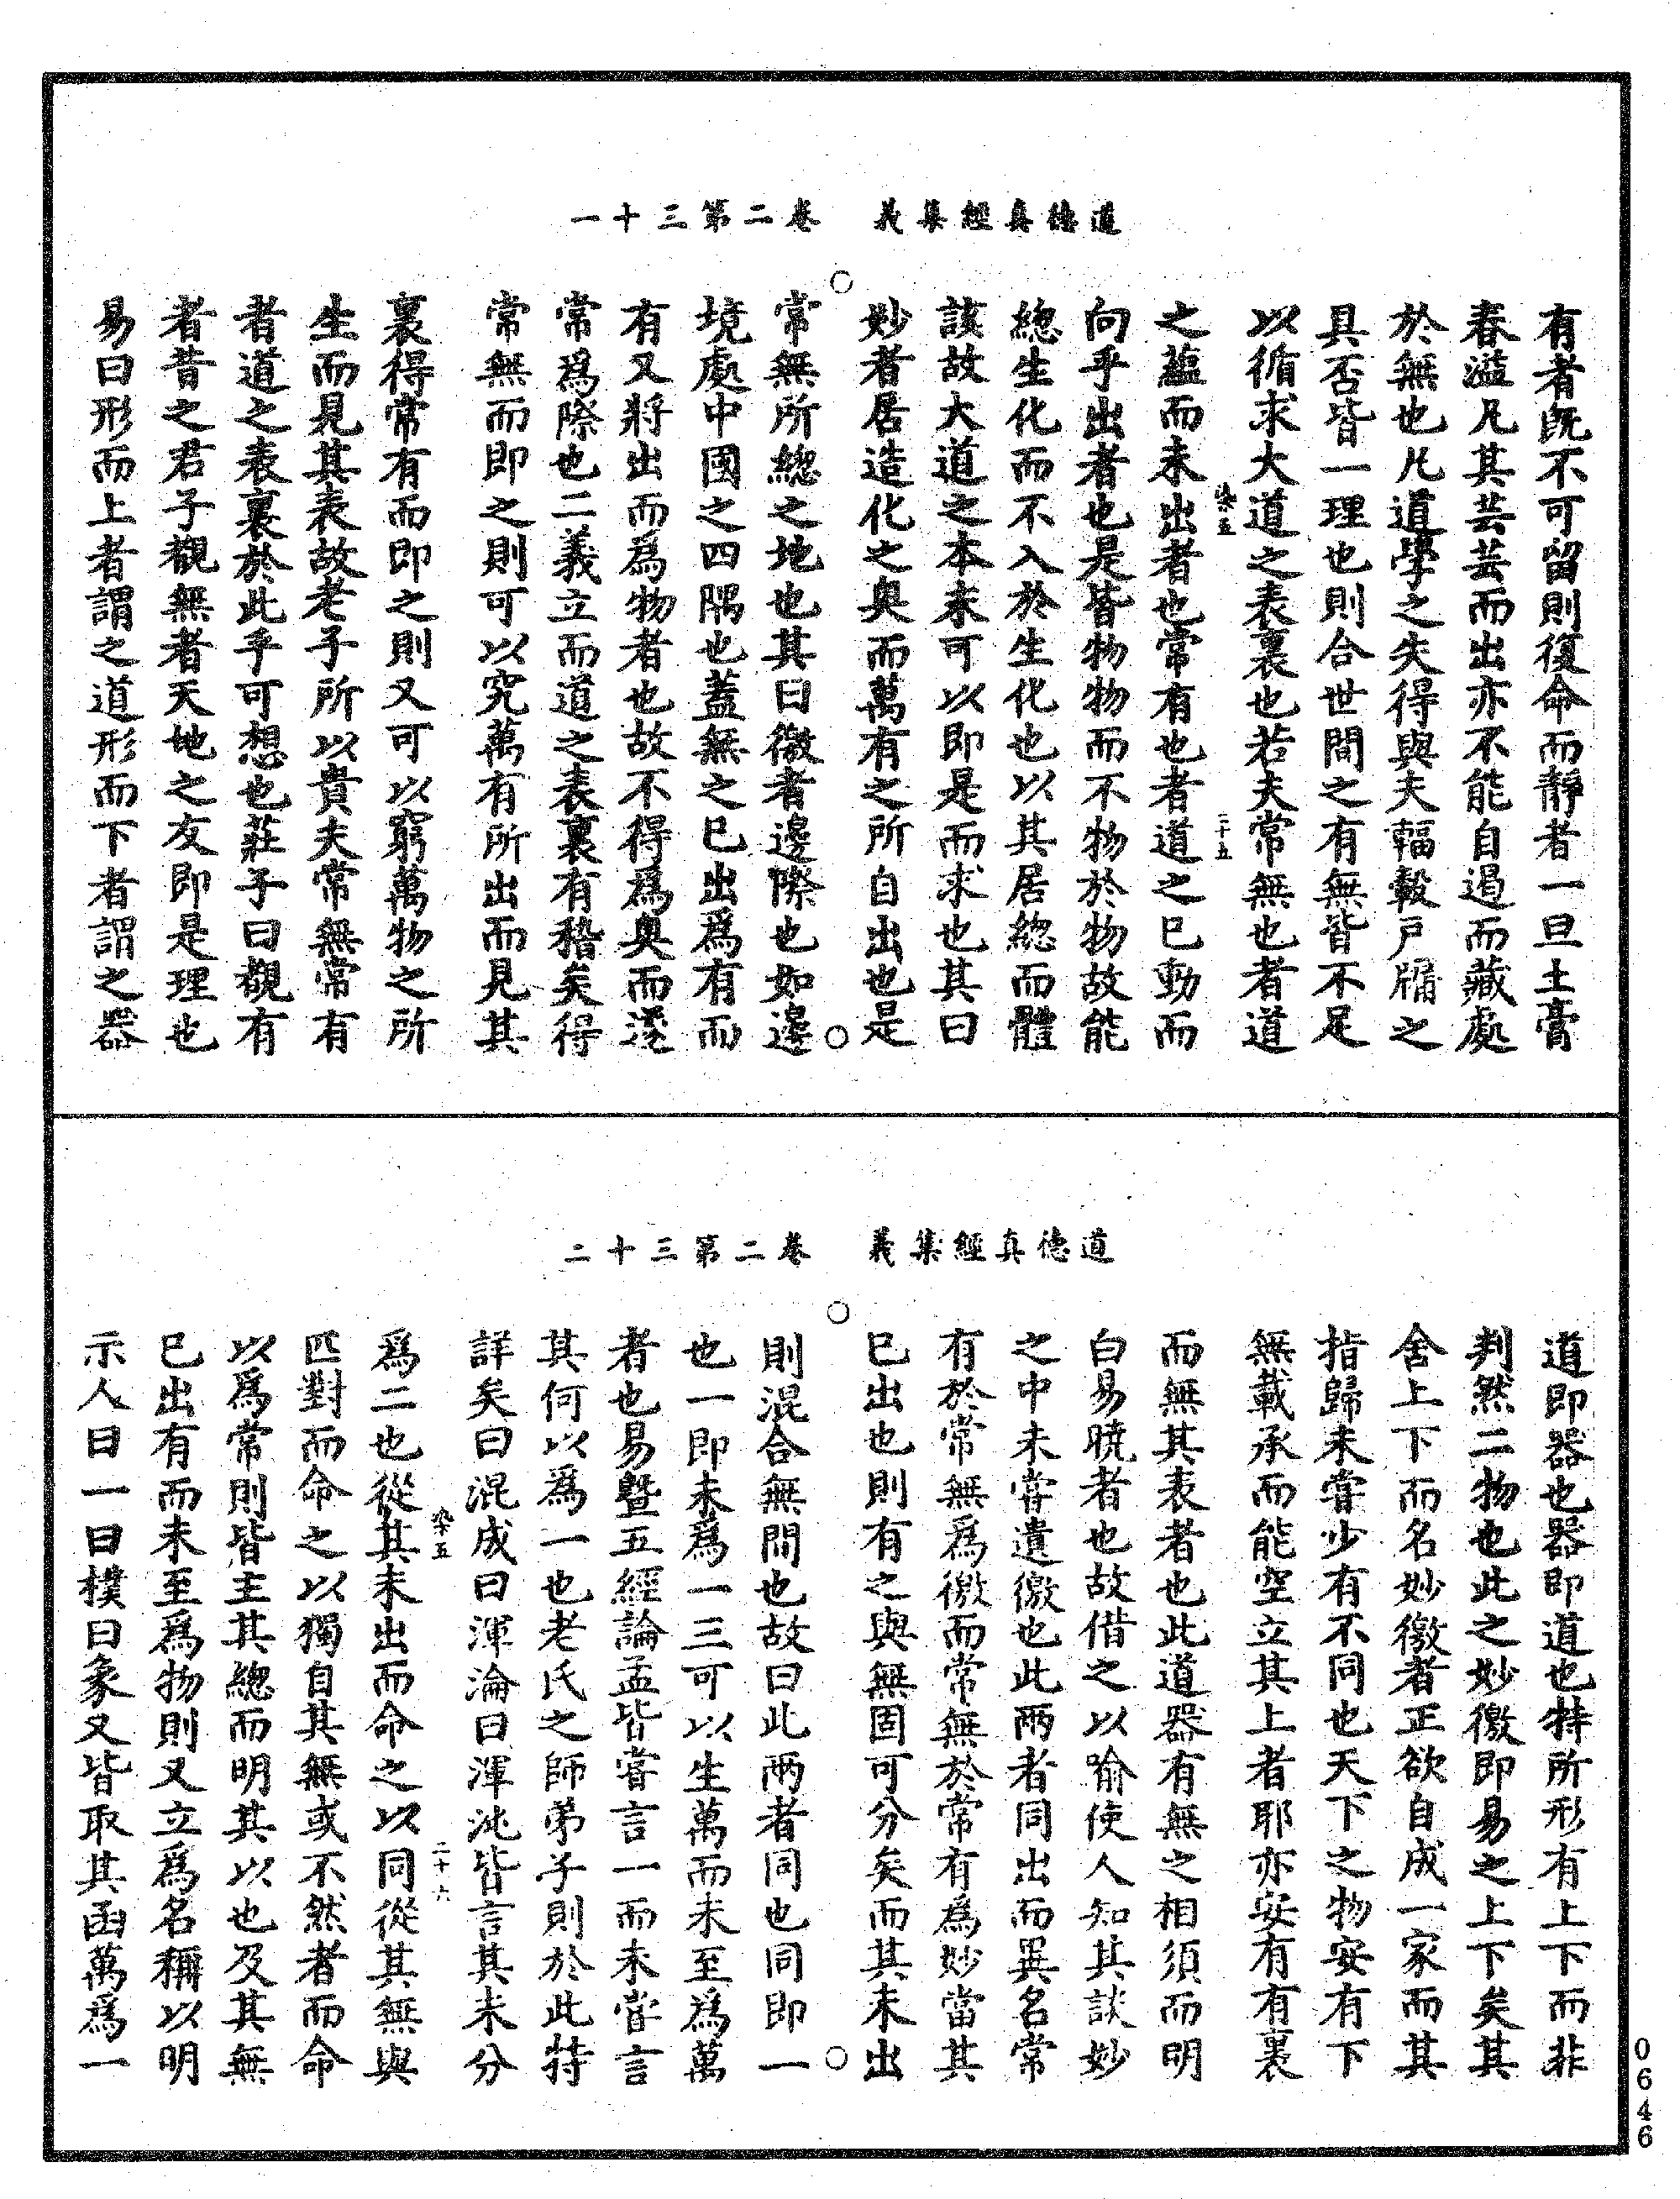 道德真經集義　卷二第三十一
有者既不可留則復命而靜者一旦土膏
春溢凡其芸芸而出亦不能自遏而藏處
於無也凡道學之失得與夫輻轂戶牖之
具否皆一理也則合世間之有無皆不足
以循求大道之表裏也若夫常無也者道
染五
二十五
之蘊而未出者也常有也者道之已動而
向乎出者也是皆物物而不物於物故能
總生化而不入於生化也以其居總而體
該故大道之本末可以即是而求也其曰
妙者居造化之奧而萬有之所自出也是
常無所總之地也其曰徼者邊際也如邊
境處中國之四隅也蓋無之已出為有而
有又將出而為物者也故不得為奧而遂
常為際也二義立而道之表裏有稽矣得
常無而即之則可以究萬有所出而見其
裏得常有而即之則又可以窮萬物之所
生而見其表故老子所以貴夫常無常有
者道之表裏於此乎可想也莊子曰觀有
者昔之君子觀無者天地之友即是理也
易曰形而上者謂之道形而下者謂之器
道德真經集義　卷二第三十二
道即器也器即道也特所形有上下而非
判然二物也此之妙徼即易之上下矣其
舍上下而名妙徼者正欲自成一家而其
指歸未嘗少有不同也天下之物安有下
無載承而能空立其上者耶亦安有有裏
而無其表者也此道器有無之相須而明
白易曉者也故借之以喻使人知其談妙
之中未嘗遺徼也此兩者同出而異名常
有於常無為徼而常無於常有為妙當其
已出也則有之與無固可分矣而其未出
則混合無間也故曰此兩者同也同即一
也一即未為一三可以生萬而未至為萬
者也易暨五經論孟皆嘗言一而未嘗言
其何以為一也老氏之師弟子則於此特
詳矣曰混成曰渾淪曰渾沌皆言其未分
染五
二十六
為二也從其未出而命之以同從其無與
匹對而命之以獨自其無或不然者而命
以為常則皆主其總而明其以也及其無
已出有而未至為物則又立為名稱以明
示人曰一曰樸曰象又皆取其函萬為一
0646